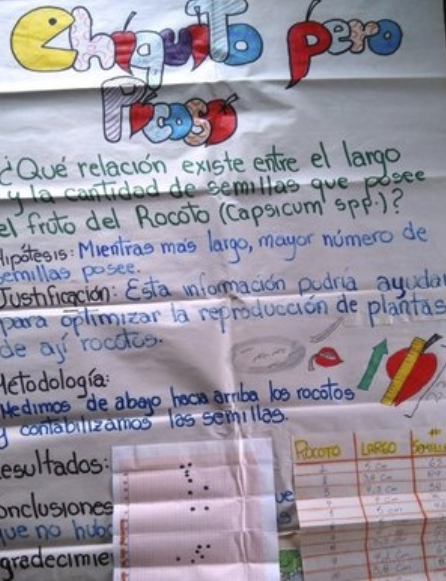 Chiquito pero
Picoso
¿Qué relación existe entre el largo
y la cantidad de semillas que posee
el fruto del Rocoto (Capsicum spp.)?
Hipótesis: Mientras más largo, mayor número de
semillas posee.
Justificación: Esta información podría ayudar
para optimizar la reproducción de plantas
de ají rocotos.
Metodología:
Medimos de abajo hacia arriba los rocotos
y contabilizamos las semillas.
Resultados:
ROCOTO LARGO SEMILL
Conclusiones
que no hub
gradecimie